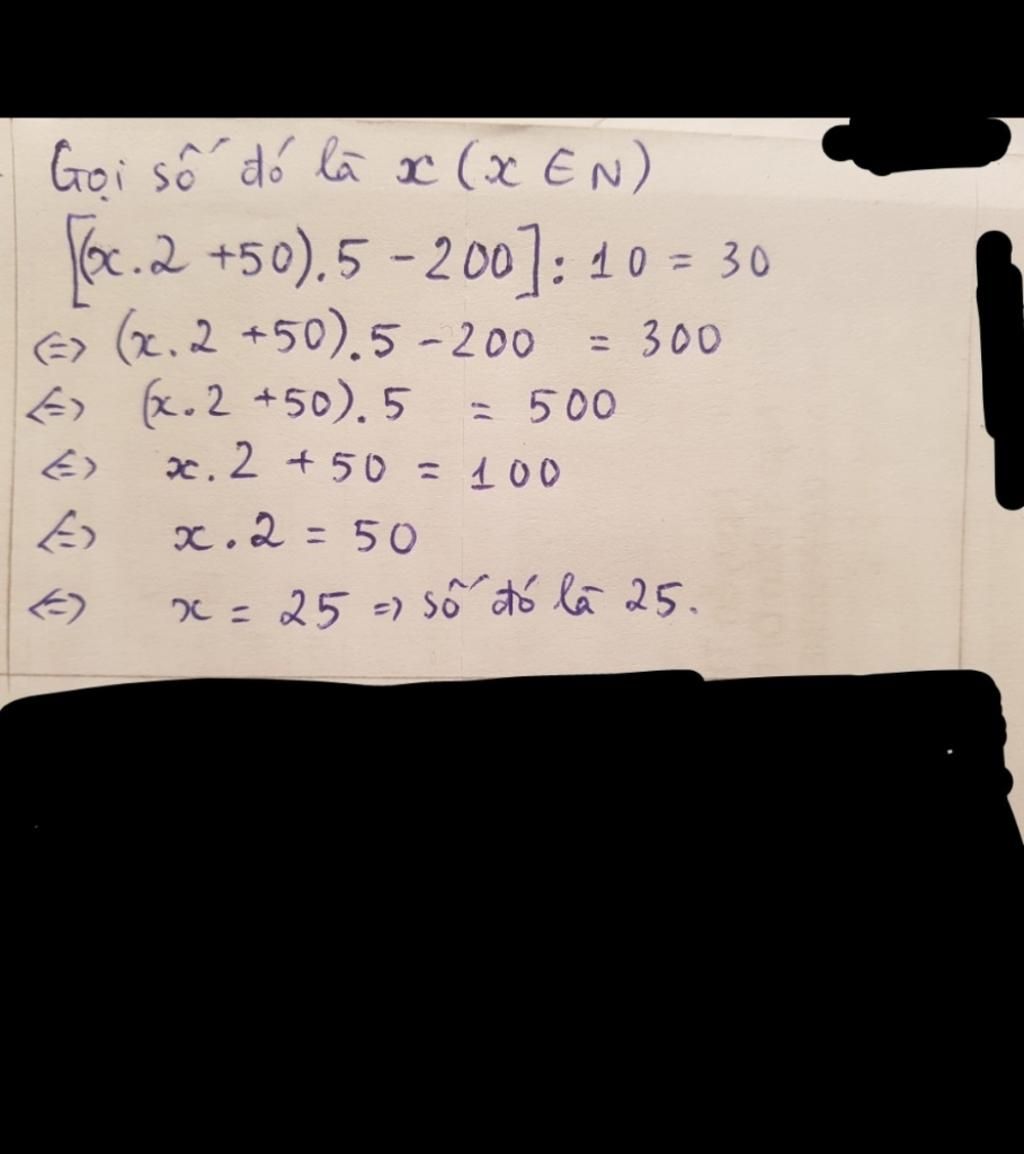 Gọi số đó là x (x ∈ N)
[(x.2 +50).5 - 200] : 10 = 30
<=> (x.2 +50).5 - 200 = 300
<=> (x.2 +50).5 = 500
<=> x.2 + 50 = 100
<=> x.2 = 50
<=> x = 25 => số đó là 25.